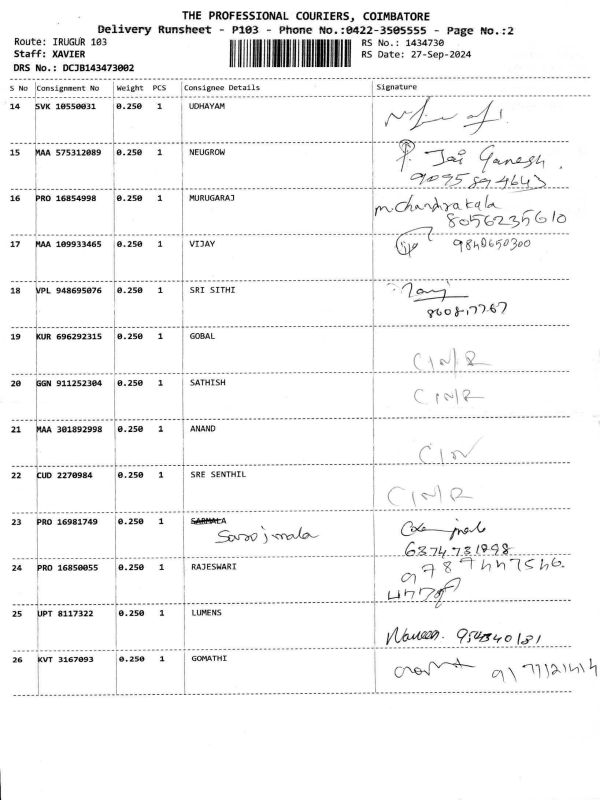 THE PROFESSIONAL COURIERS, COIMBATORE
Delivery Runsheet - P103 - Phone No.:0422-3505555 - Page No.:2
Route: IRUGUR 103 RS No.: 1434730
Staff: XAVIER RS Date: 27-Sep-2024
DRS No.: DCJB143473002
S No Consignment No Weight PCS Consignee Details Signature
14 SVK 10550031 0.250 1 UDHAYAM
15 MAA 575312089 0.250 1 NEUGROW Jai Ganesh.
9095894643
16 PRO 16854998 0.250 1 MURUGARAJ m.chandrakala
8056235610
17 MAA 109933465 0.250 1 VIJAY 9840650300
18 VPL 948695076 0.250 1 SRI SITHI
19 KUR 696292315 0.250 1 GOBAL C/N/R
20 GGN 911252304 0.250 1 SATHISH C/N/R
21 MAA 301892998 0.250 1 ANAND C/N
22 CUD 2270984 0.250 1 SRE SENTHIL C/N/R
23 PRO 16981749 0.250 1 SARMALA
Sarojmala
6374731898
24 PRO 16850055 0.250 1 RAJESWARI
25 UPT 8117322 0.250 1 LUMENS
Naveen.
26 KVT 3167093 0.250 1 GOMATHI